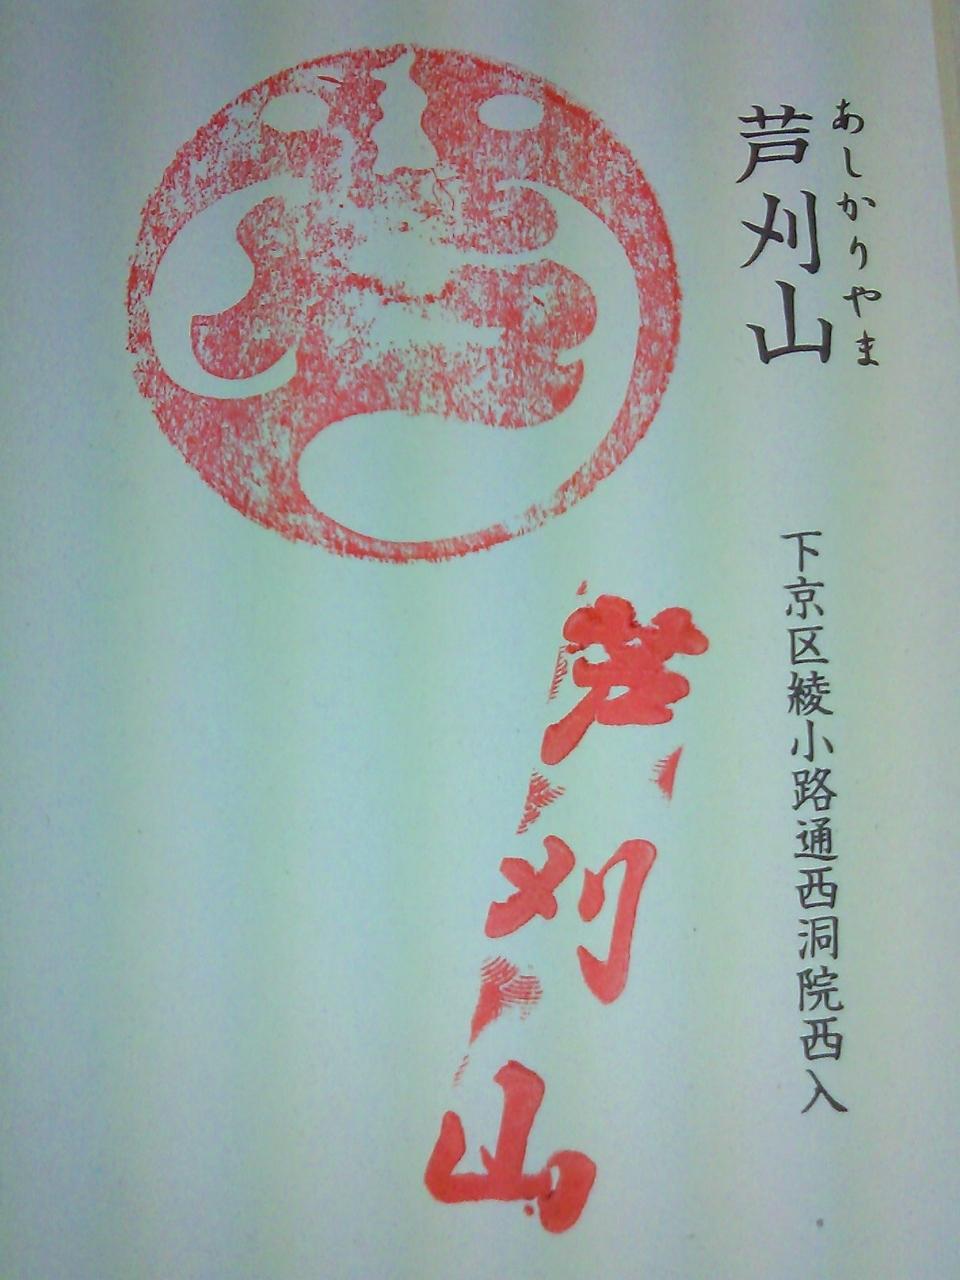 あしかりやま
芦刈山
下京区綾小路通西洞院西入
芦刈山